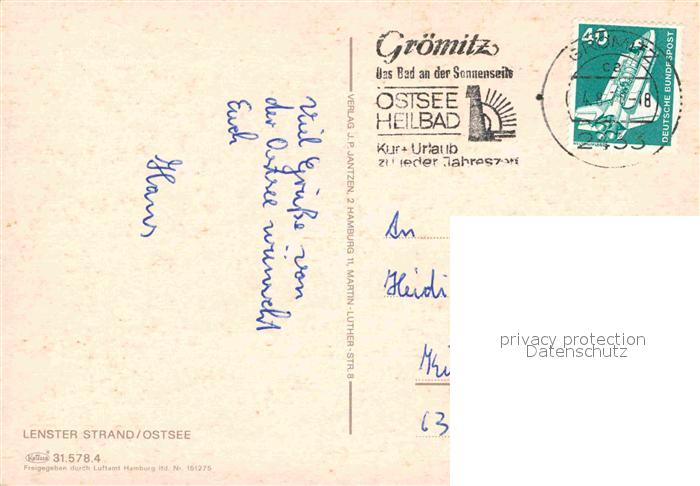 Viel Grüße von
der Ostsee wünscht
Euch
Hans
LENSTER STRAND/OSTSEE
31.578.4
Freigegeben durch Luftamt Hamburg ltd. Nr. 151275
VERLAG J. P. JANTZEN, 2 HAMBURG 11, MARTIN-LUTHER-STR. 8
Grömitz
Das Bad an der Sonnenseite
OSTSEE
HEILBAD
Kur+Urlaub
zu jeder Jahreszeit
GRÖMITZ
ca
-18
2433
40
DEUTSCHE BUNDESPOST
An
Heidi
63
privacy protection
Datenschutz